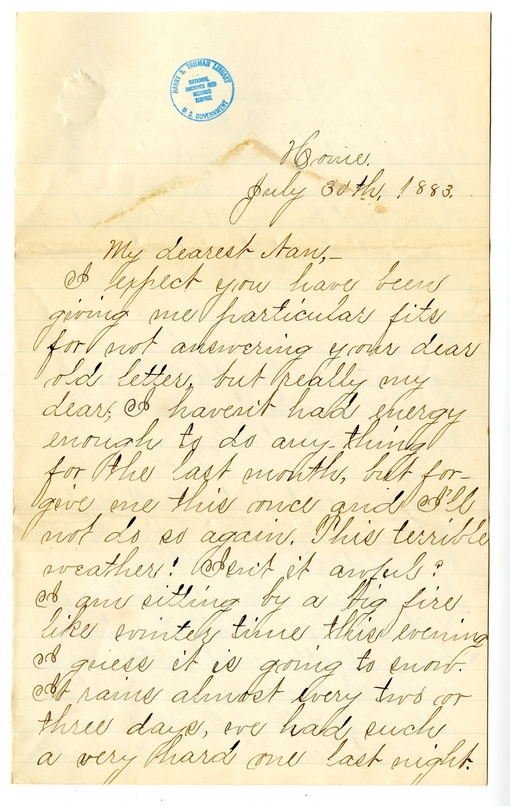 HARRY S. TRUMAN LIBRARY
NATIONAL
ARCHIVES AND
RECORDS
SERVICE
U. S. GOVERNMENT
Home.
July 30th, 1883.
My dearest Nan,—
I expect you have been
giving me particular fits
for not answering your dear
old letter, but really my
dear, I haven't had energy
enough to do any-thing
for the last month, but for-
give me this once and I'll
not do so again. This terrible
weather! Isn't it awful?
I am sitting by a big fire
like winter time this evening
I guess it is going to snow.
It rains almost every two or
three days, we had such
a very hard one last night.